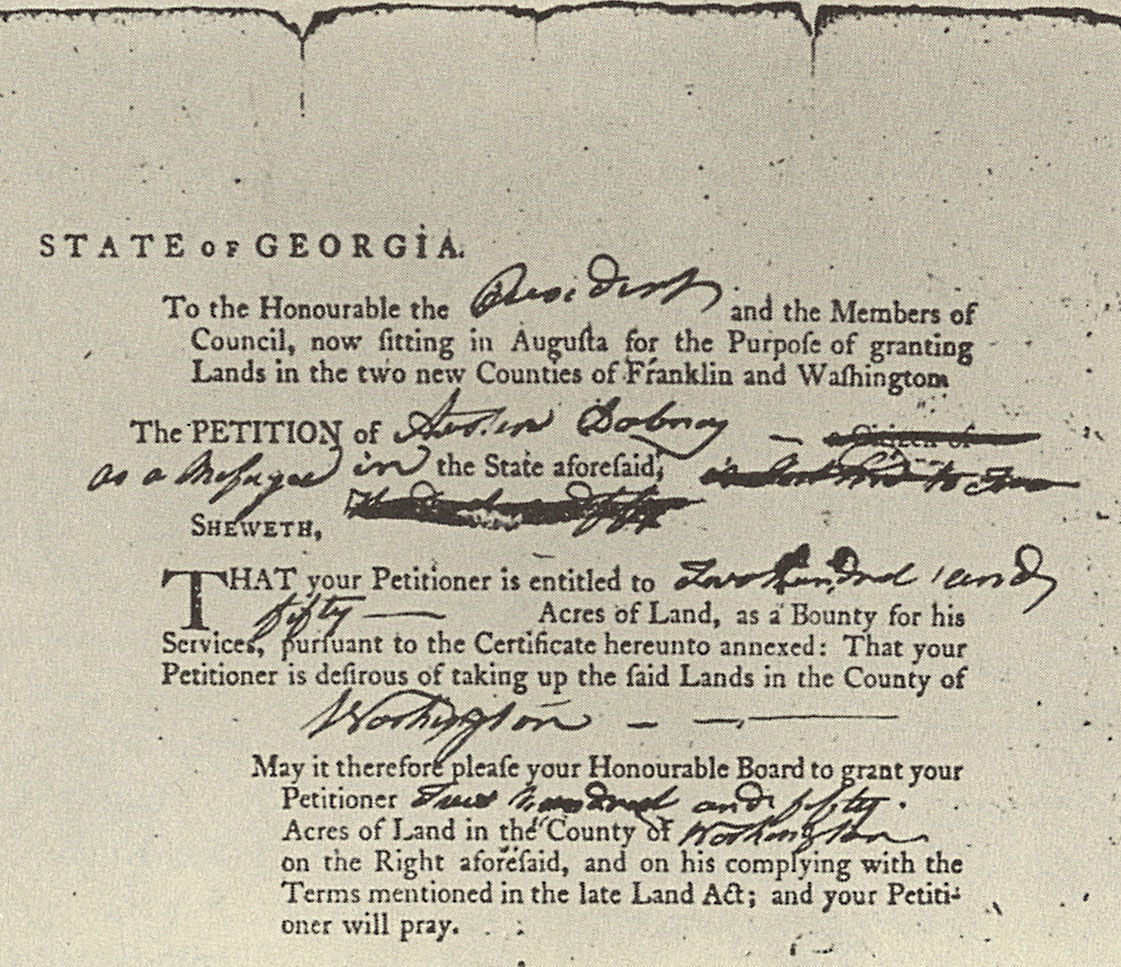 STATE OF GEORGIA.
To the Honourable the President and the Members of
Council, now ſitting in Auguſta for the Purpoſe of granting
Lands in the two new Counties of Franklin and Waſhington
The PETITION of Austin Dabney — a Citizen of
as a Refugee in the State aforeſaid,
SHEWETH,
THAT your Petitioner is entitled to Two hundred and
fifty — Acres of Land, as a Bounty for his
Services, purſuant to the Certificate hereunto annexed: That your
Petitioner is deſirous of taking up the ſaid Lands in the County of
Washington — —
May it therefore pleaſe your Honourable Board to grant your
Petitioner Two hundred and fifty
Acres of Land in the County of Washington
on the Right aforeſaid, and on his complying with the
Terms mentioned in the late Land Act; and your Petiti-
oner will pray.